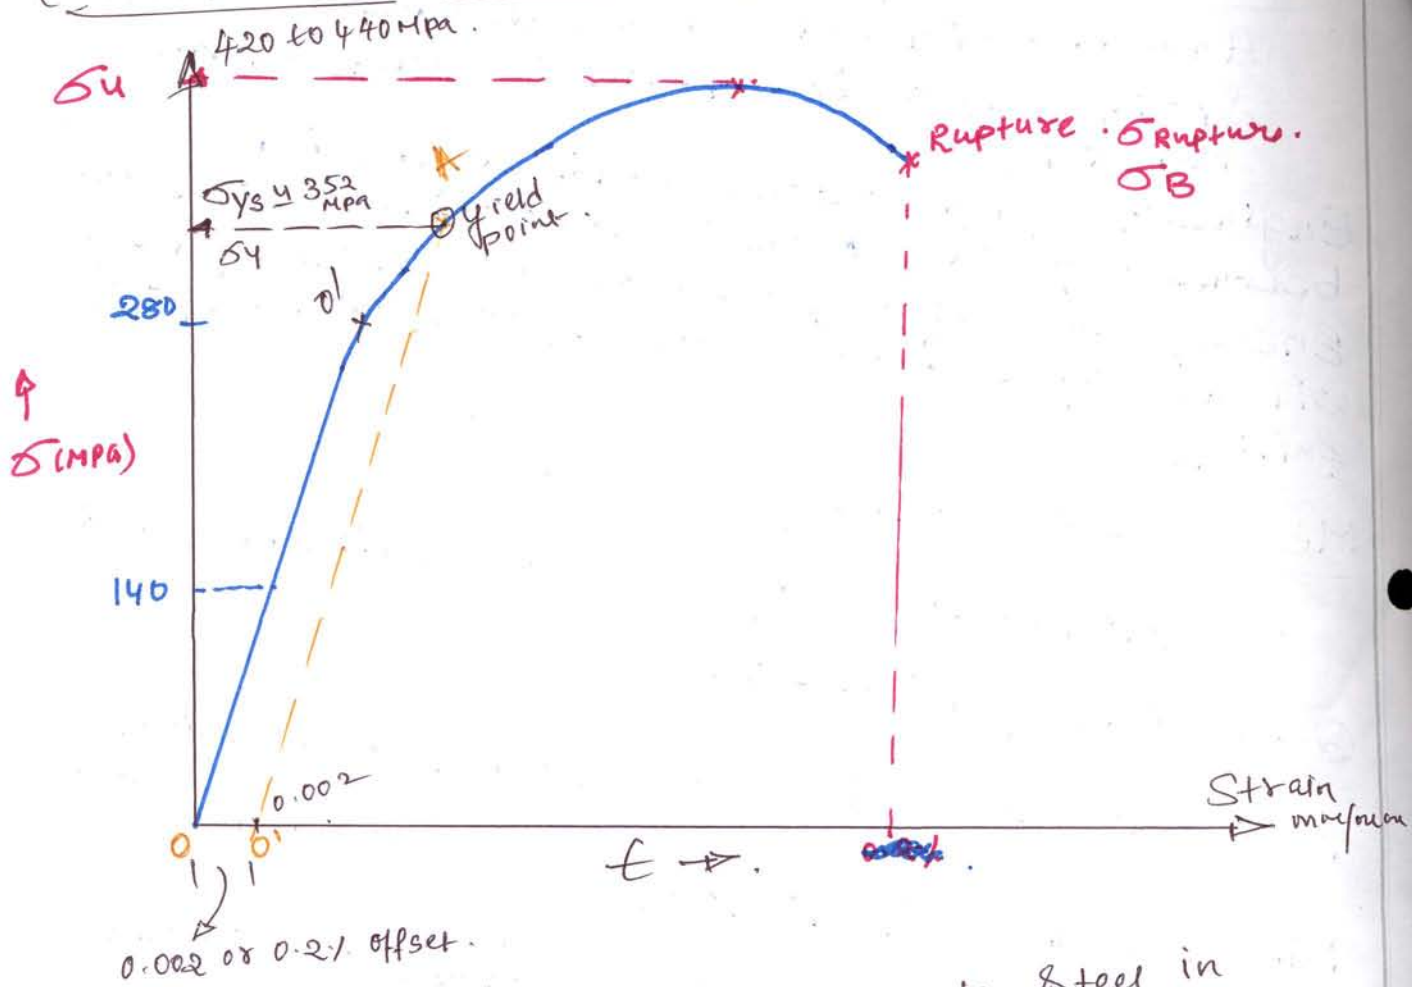 420 to 440 Mpa.
σu
Rupture . σRupture.
σB
A
σys ≃ 352 MPa
σy
yield point.
o'
280
↑
σ (MPa)
140
0.002
Strain
O O'
ε →.
0.002 or 0.2% offset.
Steel in